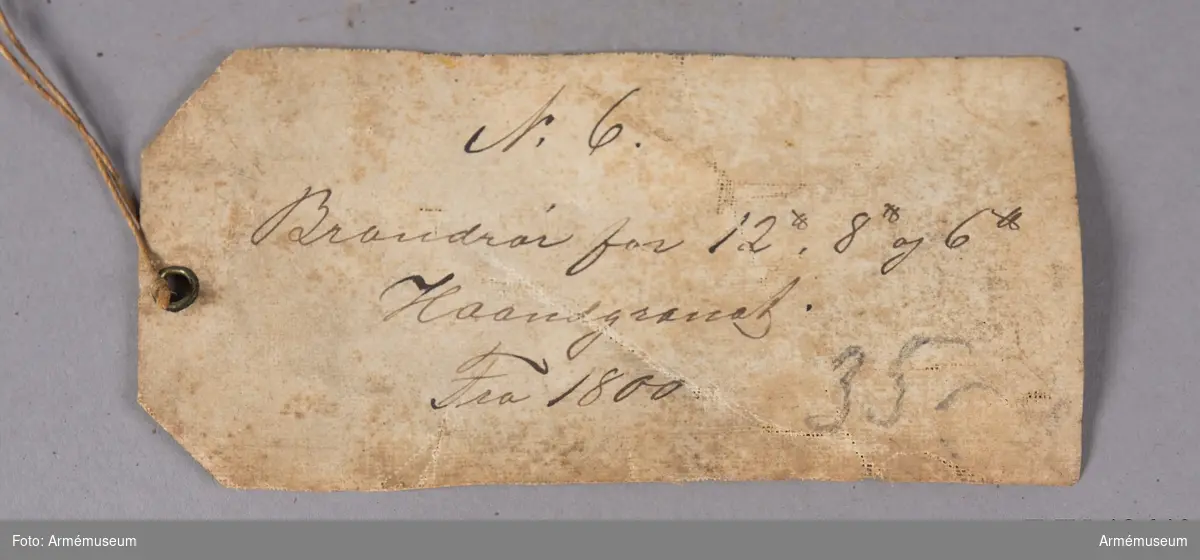 Nr. 6.
Brandrör for 12℔, 8℔ og 6℔
Haandgranat.
Fra 1800
35
Foto: Armémuseum
Armémuseum